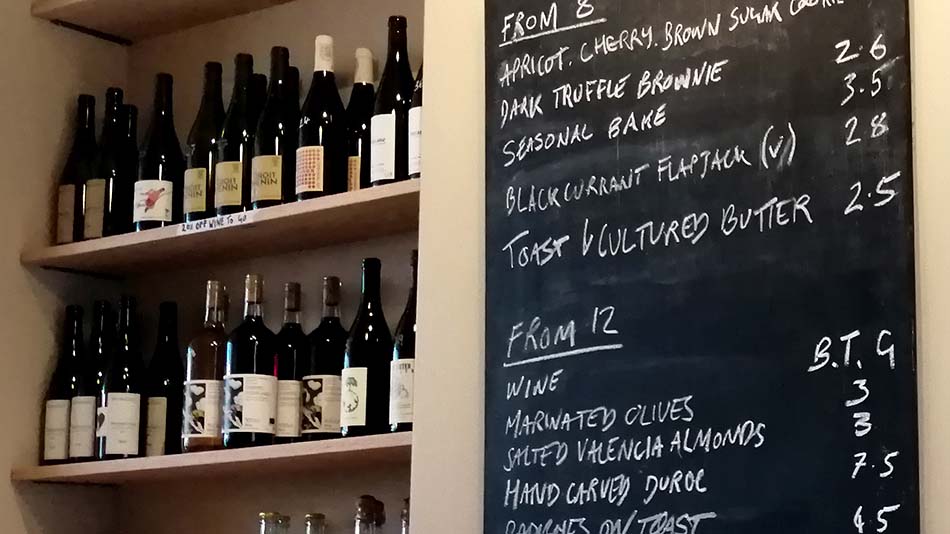 FROM 8
APRICOT. CHERRY. BROWN SUGAR COOKIE
DARK TRUFFLE BROWNIE 2.6
SEASONAL BAKE 3.5
BLACKCURRANT FLAPJACK (V) 2.8
TOAST & CULTURED BUTTER 2.5
FROM 12
WINE B.T.G
MARINATED OLIVES 3
SALTED VALENCIA ALMONDS 3
HAND CARVED DUROC 7.5
ON TOAST 4.5
20% OFF WINE TO GO